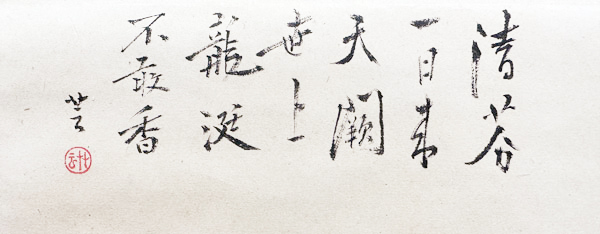 清芬
一日来
天闕
世上
龍涎
不敢香
芸